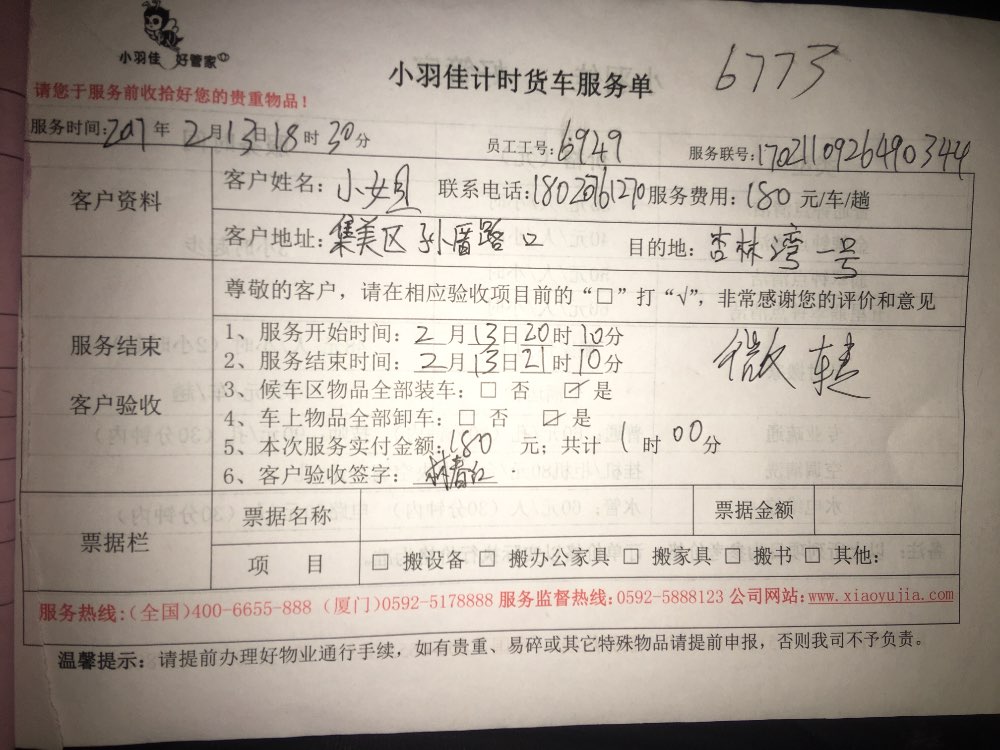 小羽佳 好管家
小羽佳计时货车服务单
6773
请您于服务前收拾好您的贵重物品！
服务时间：2017年2月13日18时30分 员工工号：6949 服务联号：170211092649034
客户资料
客户姓名：小 联系电话：18020761270 服务费用：180 元/车/趟
客户地址：集美区孙厝路口 目的地：杏林湾一号
尊敬的客户，请在相应验收项目前的“□”打“√”，非常感谢您的评价和意见
服务结束
客户验收
1、服务开始时间：2月13日20时10分
2、服务结束时间：2月13日21时10分
微 转
3、候车区物品全部装车：□ 否 ☑ 是
4、车上物品全部卸车：□ 否 ☑ 是
5、本次服务实付金额：180 元；共计 1 时 00 分
6、客户验收签字：林春红
票据栏
票据名称 票据金额
项 目 □ 搬设备 □ 搬办公家具 □ 搬家具 □ 搬书 □ 其他：
服务热线：（全国）400-6655-888（厦门）0592-5178888 服务监督热线：0592-5888123 公司网站：www.xiaoyujia.com
温馨提示：请提前办理好物业通行手续，如有贵重、易碎或其它特殊物品请提前申报，否则我司不予负责。